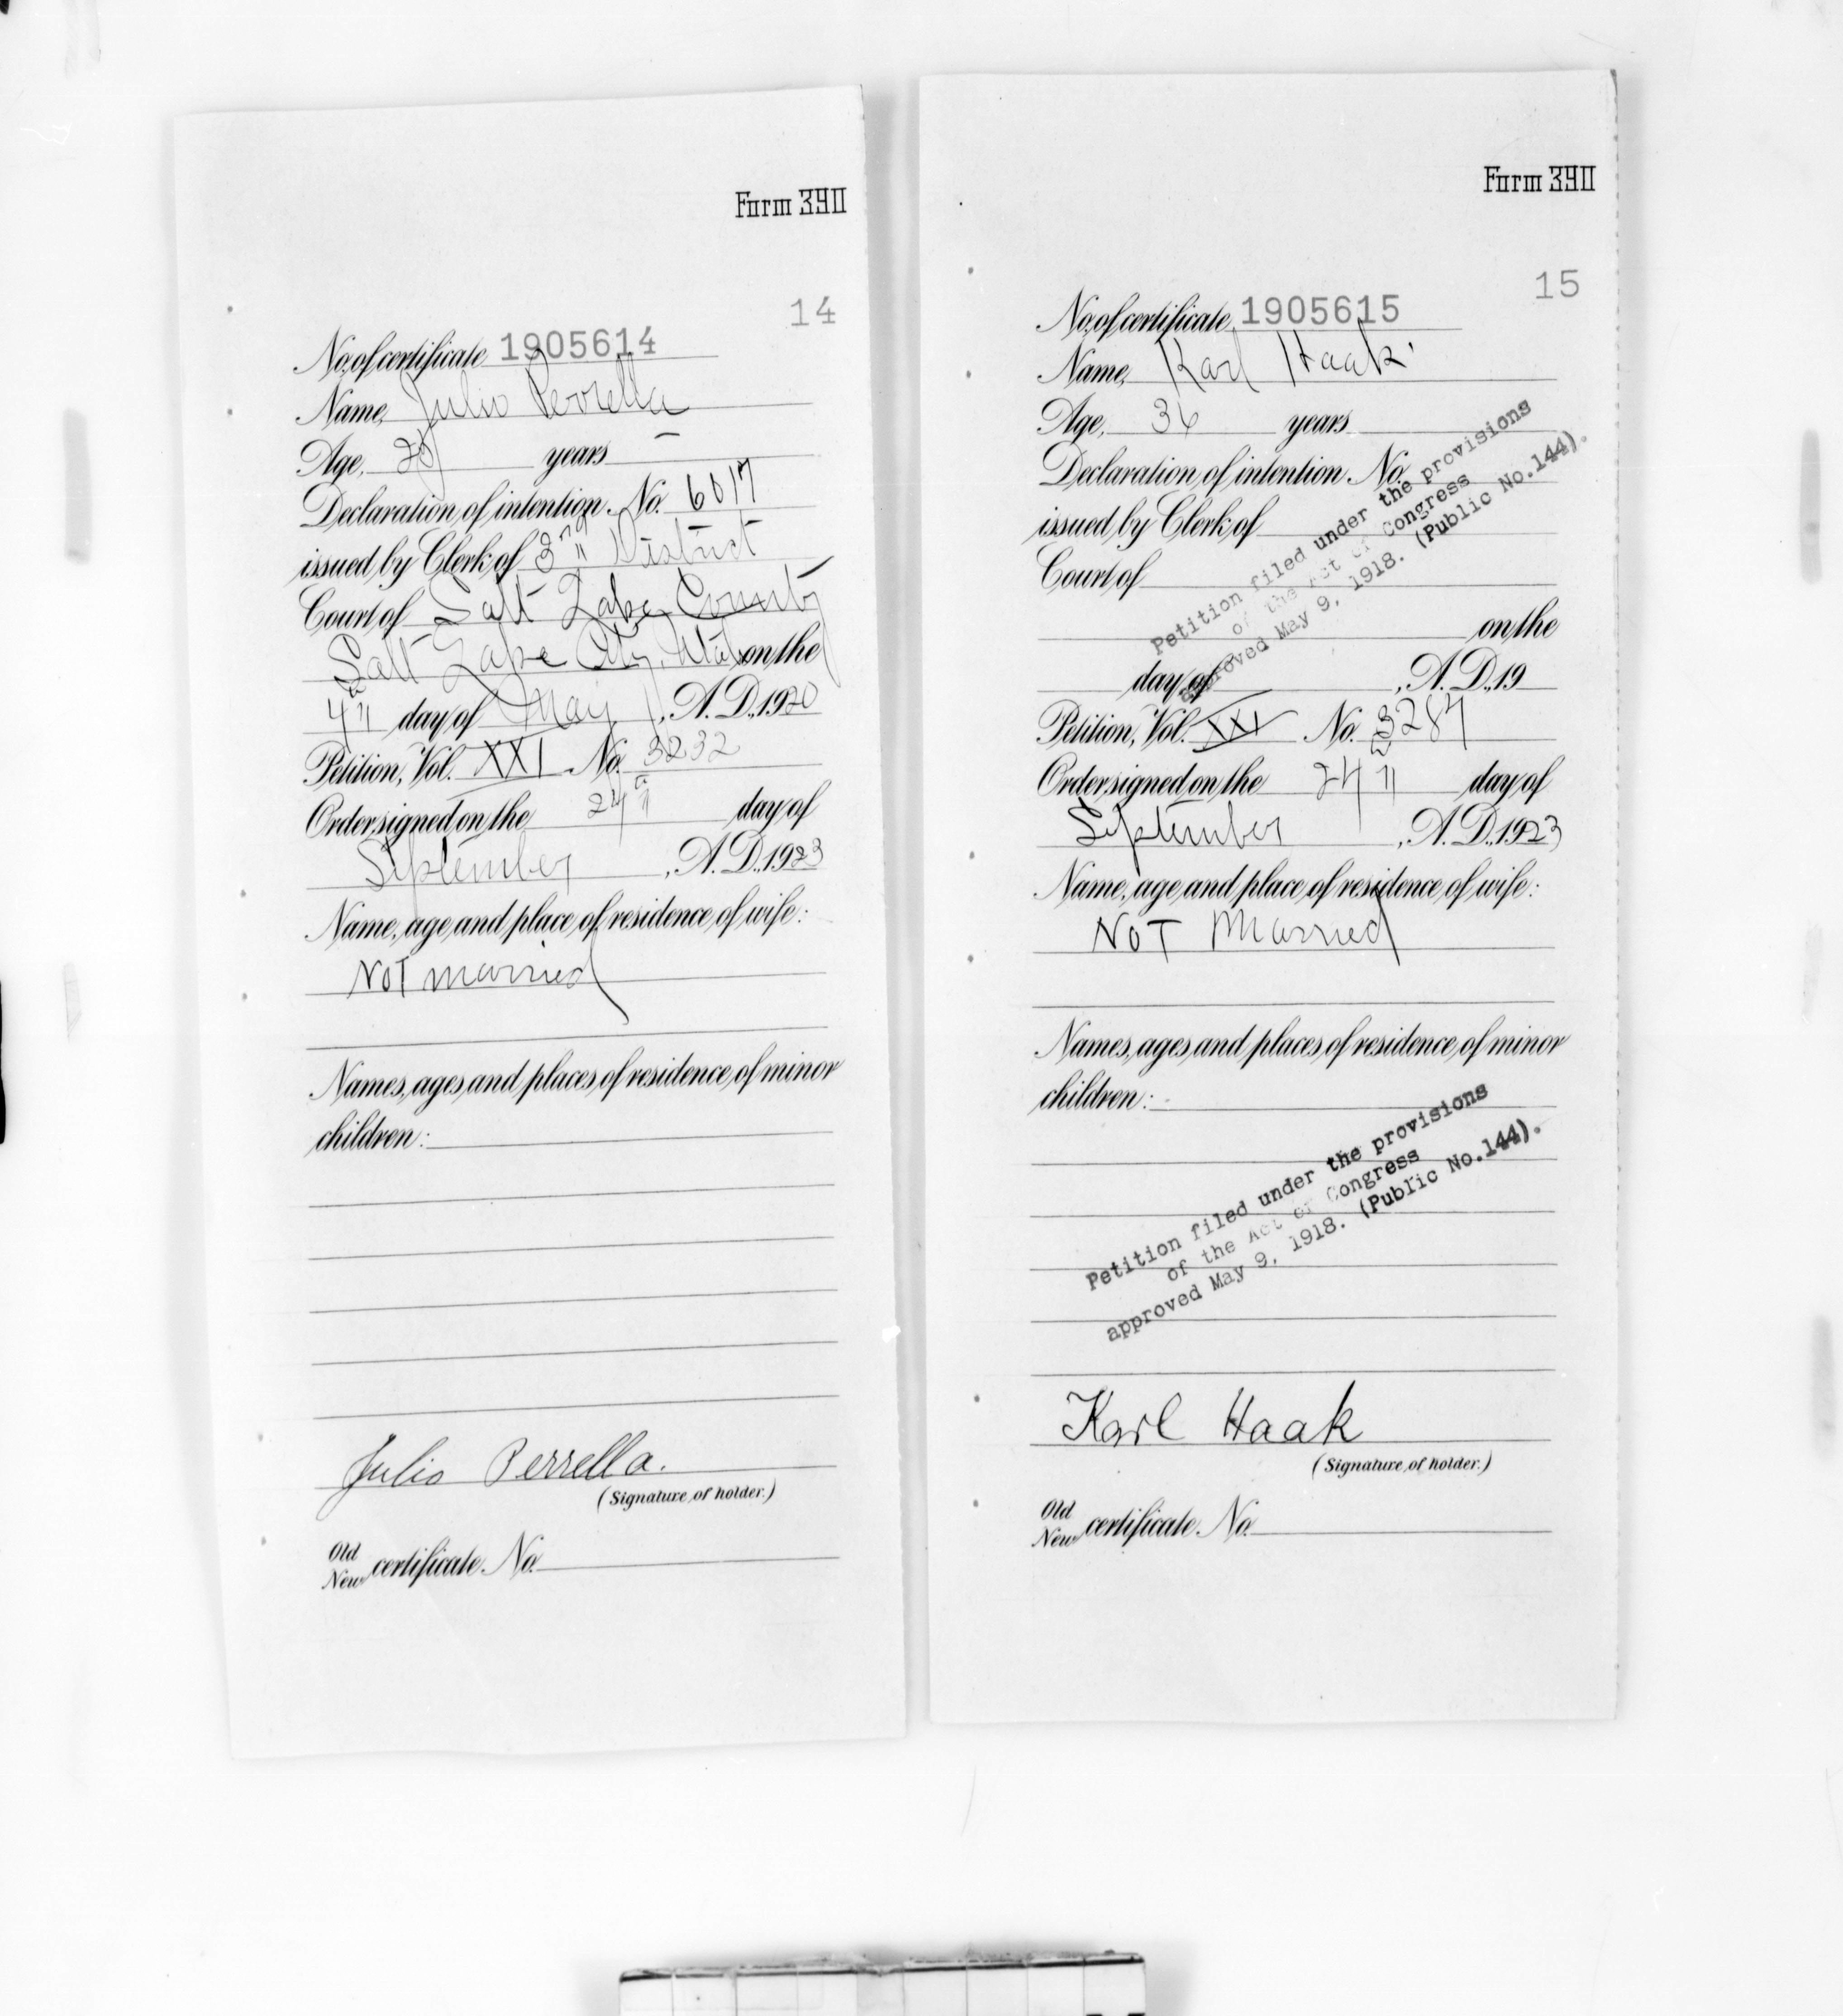 Form 390
14
No. of certificate 1905614
Name, Julio Perrella
Age, years
Declaration of intention No. 6017
issued by Clerk of 3rd District
Court of Salt Lake County
Salt Lake City, Utah on the
4" day of May, A.D., 1920
Petition, Vol. XXI No. 3232
Order signed on the 24" day of
September, A.D., 1923
Name, age and place of residence of wife:
NOT married
Names, ages and places of residence of minor
children:
Julio Perrella.
(Signature of holder.)
Old
New certificate No.
Form 390
15
No. of certificate 1905615
Name, Karl Haak
Age, 36 years
Declaration of intention No.
issued by Clerk of
Court of
on the
day of , A.D., 19
Petition filed under the provisions
of the Act of Congress
approved May 9, 1918. (Public No. 144).
Petition, Vol. XXI No. 3287
Order signed on the 24" day of
September, A.D., 1923
Name, age and place of residence of wife:
NOT Married
Names, ages and places of residence of minor
children:
Petition filed under the provisions
of the Act of Congress
approved May 9, 1918. (Public No. 144).
Karl Haak
(Signature of holder.)
Old
New certificate No.